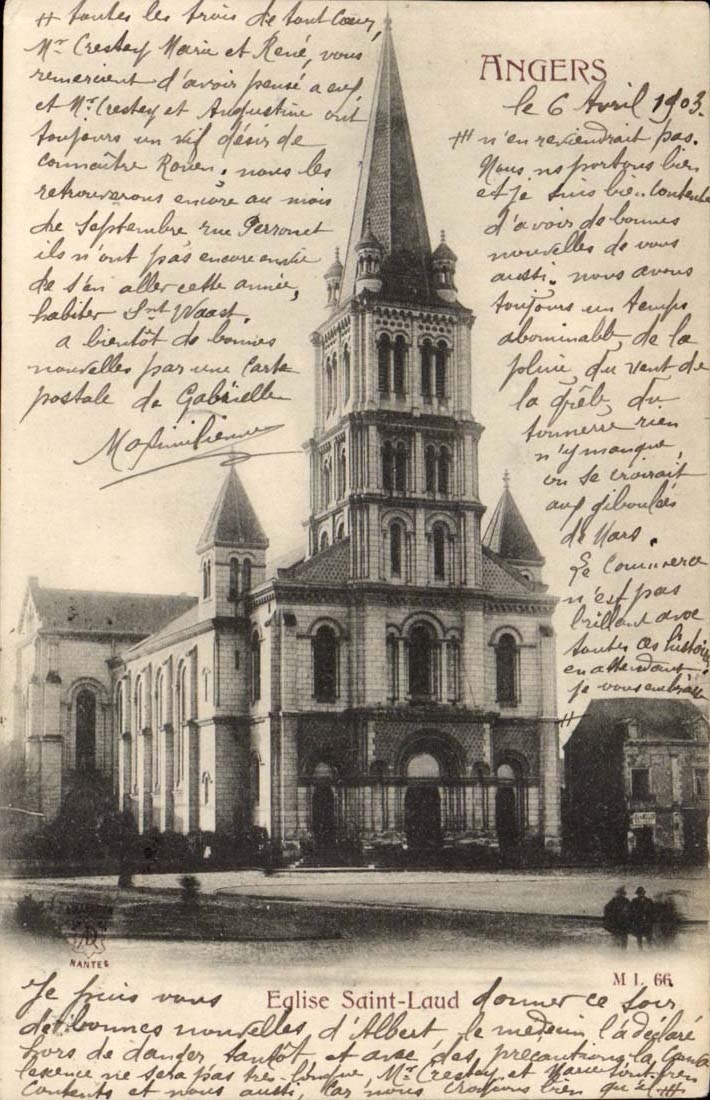 # toutes les trois de tout Cœur,
Mr Crestey Marie et René, vous
remercient d'avoir pensé a eux
et Mr Crestey et Augustine ont
toujours un vif désir de
connaître Rouen. nous les
retrouverons encore au mois
de Septembre rue Perronet
ils n'ont pas encore envie
de s'en aller cette année,
habiter St Waast.
a bientôt de bonnes
nouvelles par une Carte
postale de Gabrielle
Maximilienne
ANGERS
le 6 Avril 1903.
## n'en reviendrait pas.
Nous ns portons bien
et je suis bien contente
d'avoir de bonnes
nouvelles de vous
aussi. nous avons
toujours un temps
abominable, de la
pluie, du vent de
la grêle, du
tonnerre rien
n'y manque,
on se croirait
aux giboulées
de Mars.
Le Commerce
n'est pas
brillant avec
toutes ces histoires
en attendant
je vous embrasse
#
NANTES
M L. 66
Eglise Saint-Laud
Je puis vous donner ce soir
de bonnes nouvelles d'Albert, le medecin l'a déclaré
hors de danger tantôt et avec des précautions la conva
lescence ne sera pas très longue Mr Crestey et Marie sont bien
contents et nous aussi, car nous croyions bien qu'il ##